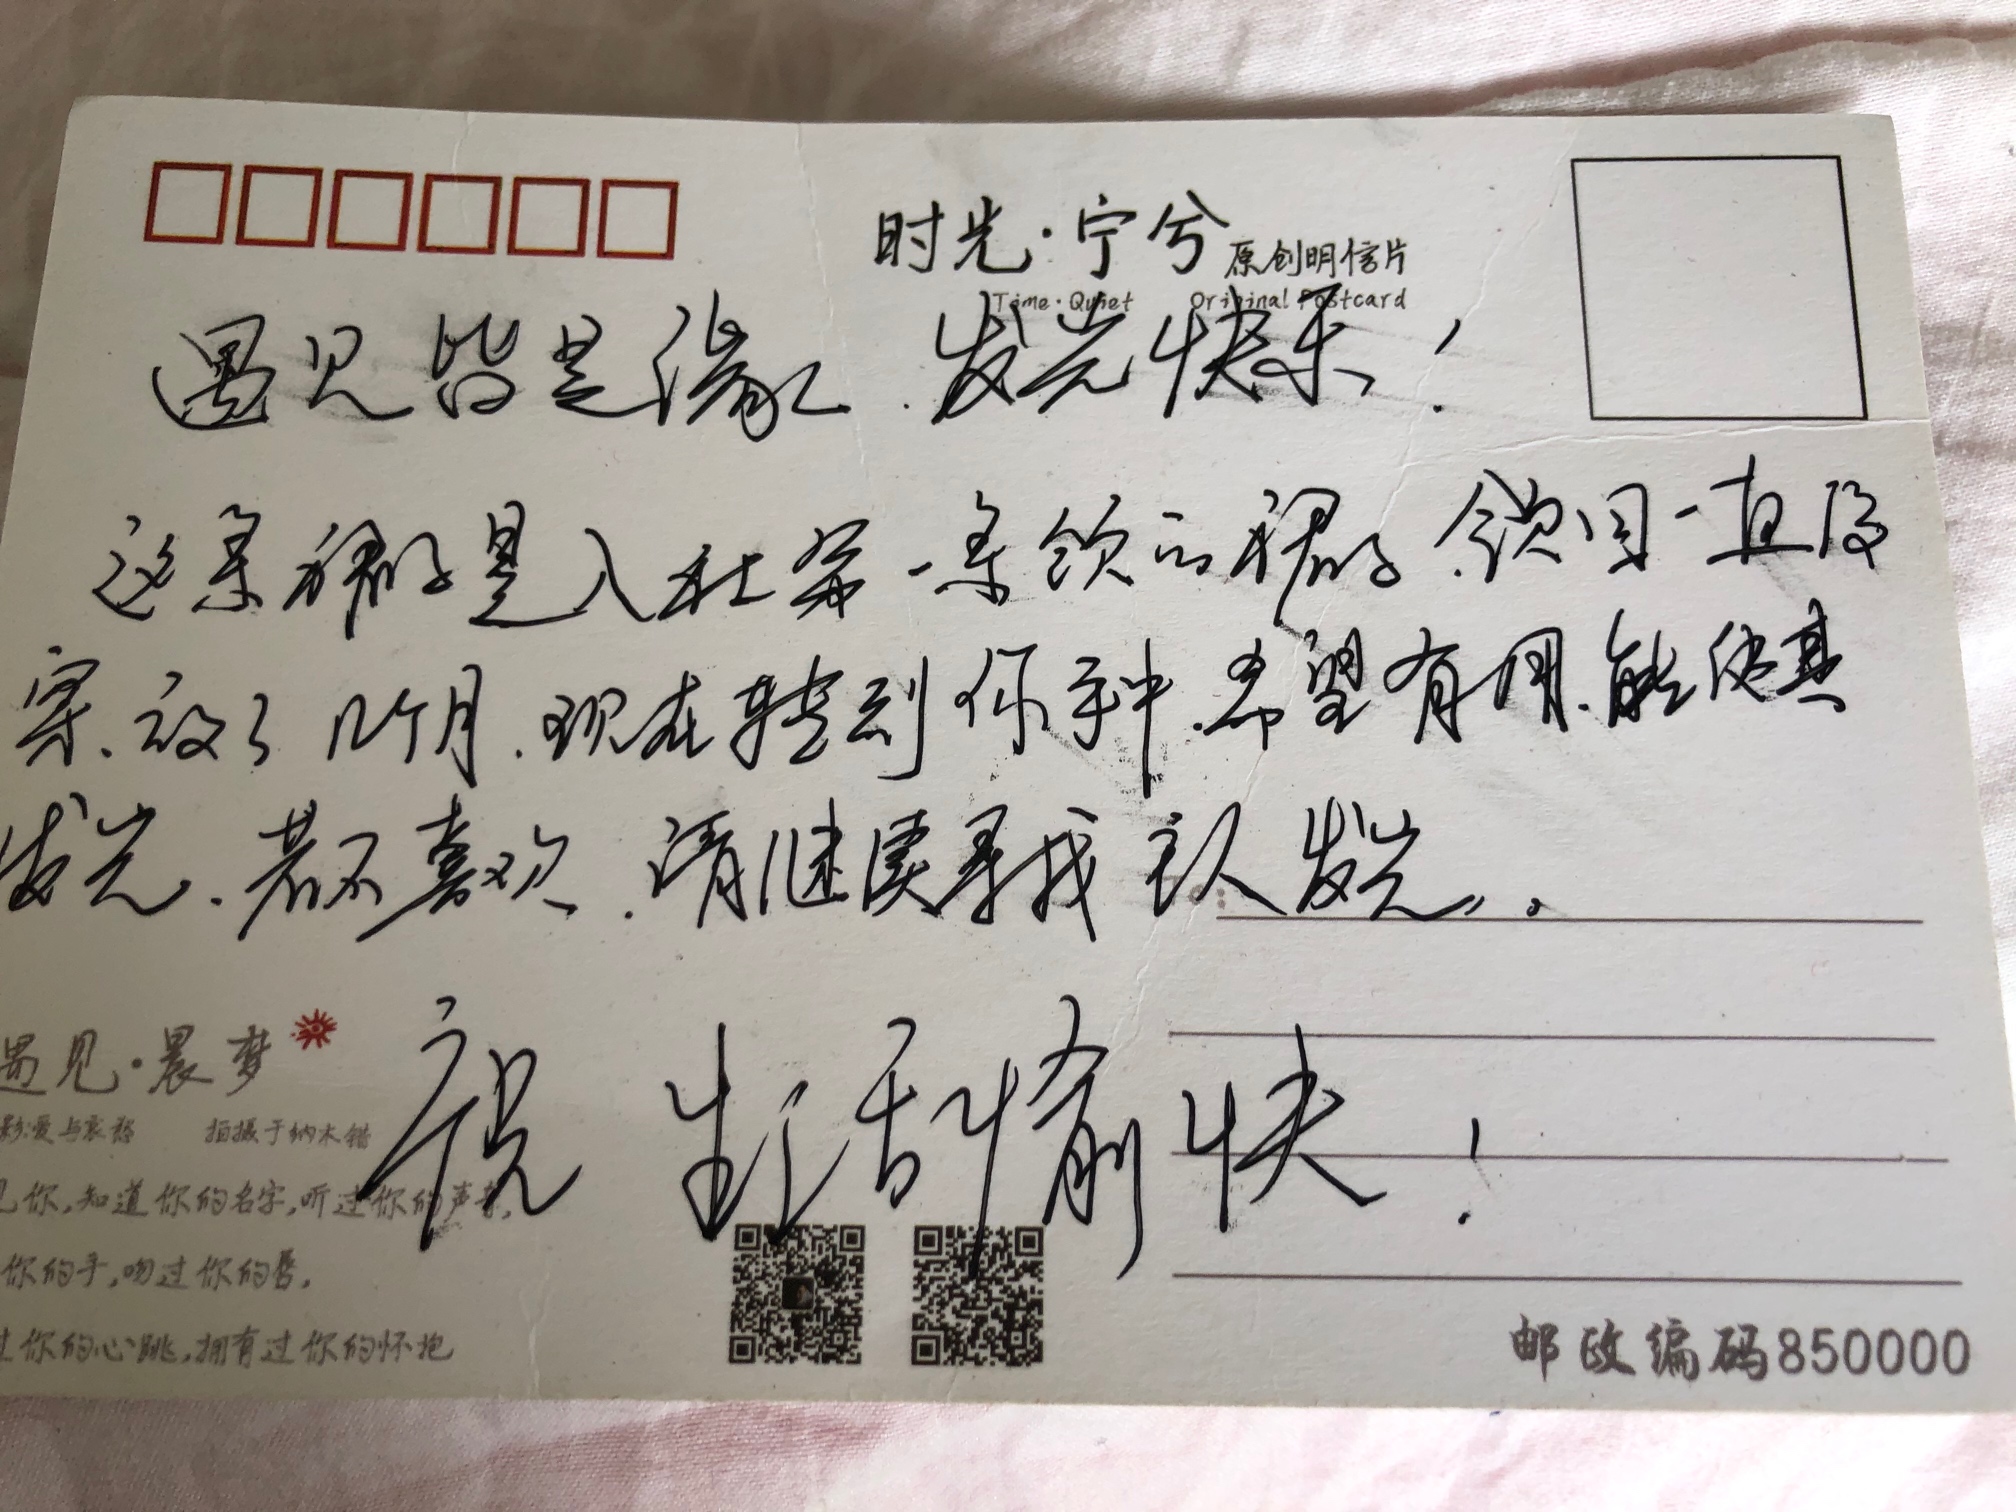 时光·宁兮 原创明信片
Time·Quiet Original Postcard
遇见皆是缘，发光快乐！
这条裙子是入社第一条领的裙子，领回一直没
穿、放了几个月，现在转到你手中，希望有用，能使其
发光，若不喜欢，请继续寻找主人发光。
祝 生活愉快！
遇见·晨梦
影:爱与哀愁 拍摄于纳木错
见你,知道你的名字,听过你的声音,
你的手,吻过你的唇,
过你的心跳,拥有过你的怀抱
邮政编码850000